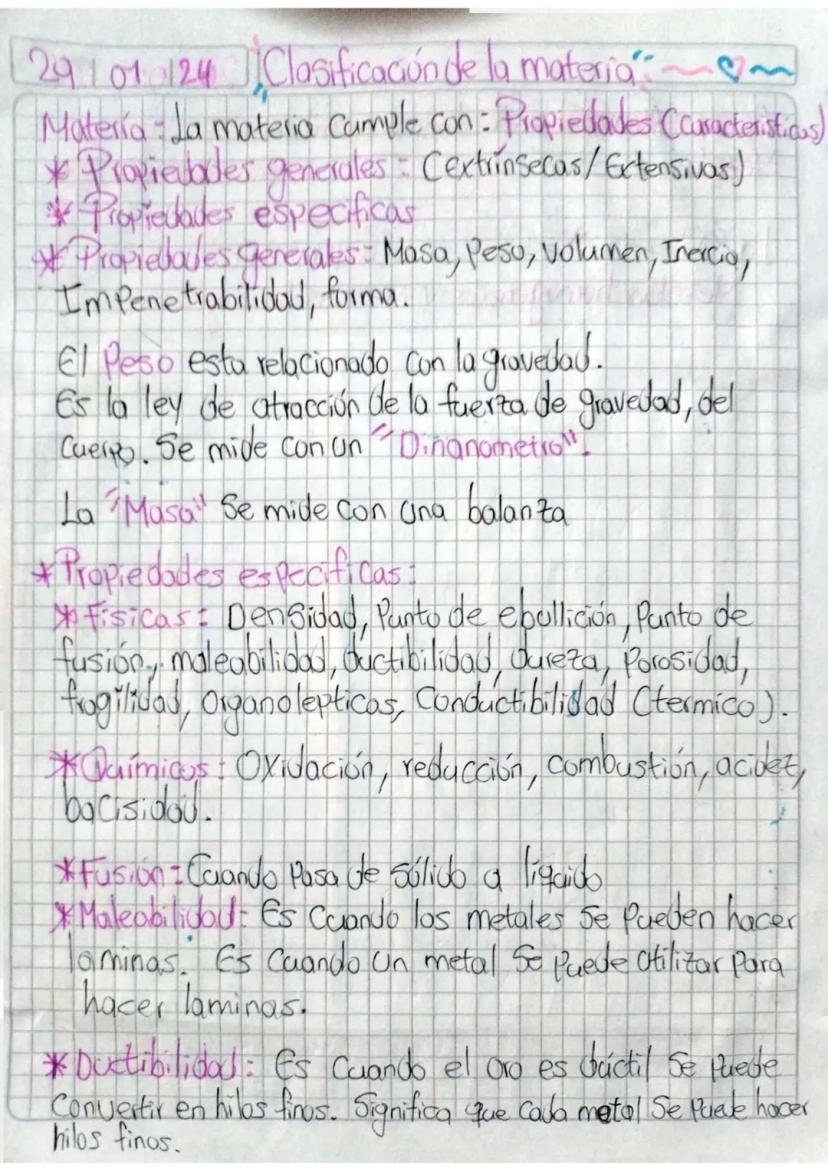 29 | 01 | 24 "Clasificación de la materia"
Matería: La materia cumple con: Propiedades (características)
* Propiedades generales: (extrínsecas/Extensivas)
* Propiedades especificas
* Propiedades generales: Masa, Peso, volumen, Inercia,
Impenetrabilidad, forma.
El Peso esta relacionado con la gravedad.
Es la ley de atracción de la fuerza de gravedad, del
cuerpo. Se mide con un "Dinanometro".
La "Masa" Se mide con una balanza
* Propiedades especificas:
* Físicas: Densidad, Punto de ebullición, Punto de
fusión, maleabilidad, ductibilidad, dureza, Porosidad,
fragilidad, organolepticas, Conductibilidad (termico).
* Químicos: Oxidación, reducción, combustión, acidez,
bacisidad.
* Fusión: Cuando Pasa de sólido a líquido
* Maleabilidad: Es Cuando los metales Se Pueden hacer
laminas. Es Cuando un metal Se Puede utilizar Para
hacer laminas.
* Ductibilidad: Es Cuando el oro es dúctil Se Puede
Convertir en hilos finos. Significa que Cada metal Se Puede hacer
hilos finos.